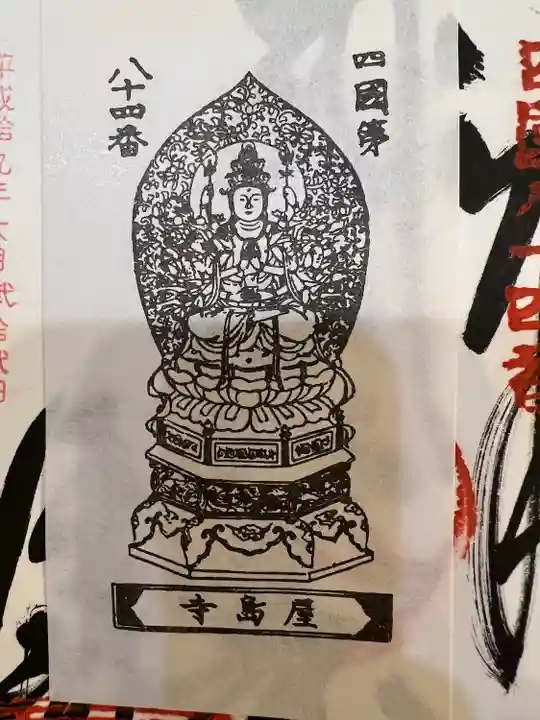 四国八十四番
四國第
八十四番
屋島寺
平成拾九年六月弐拾弐日